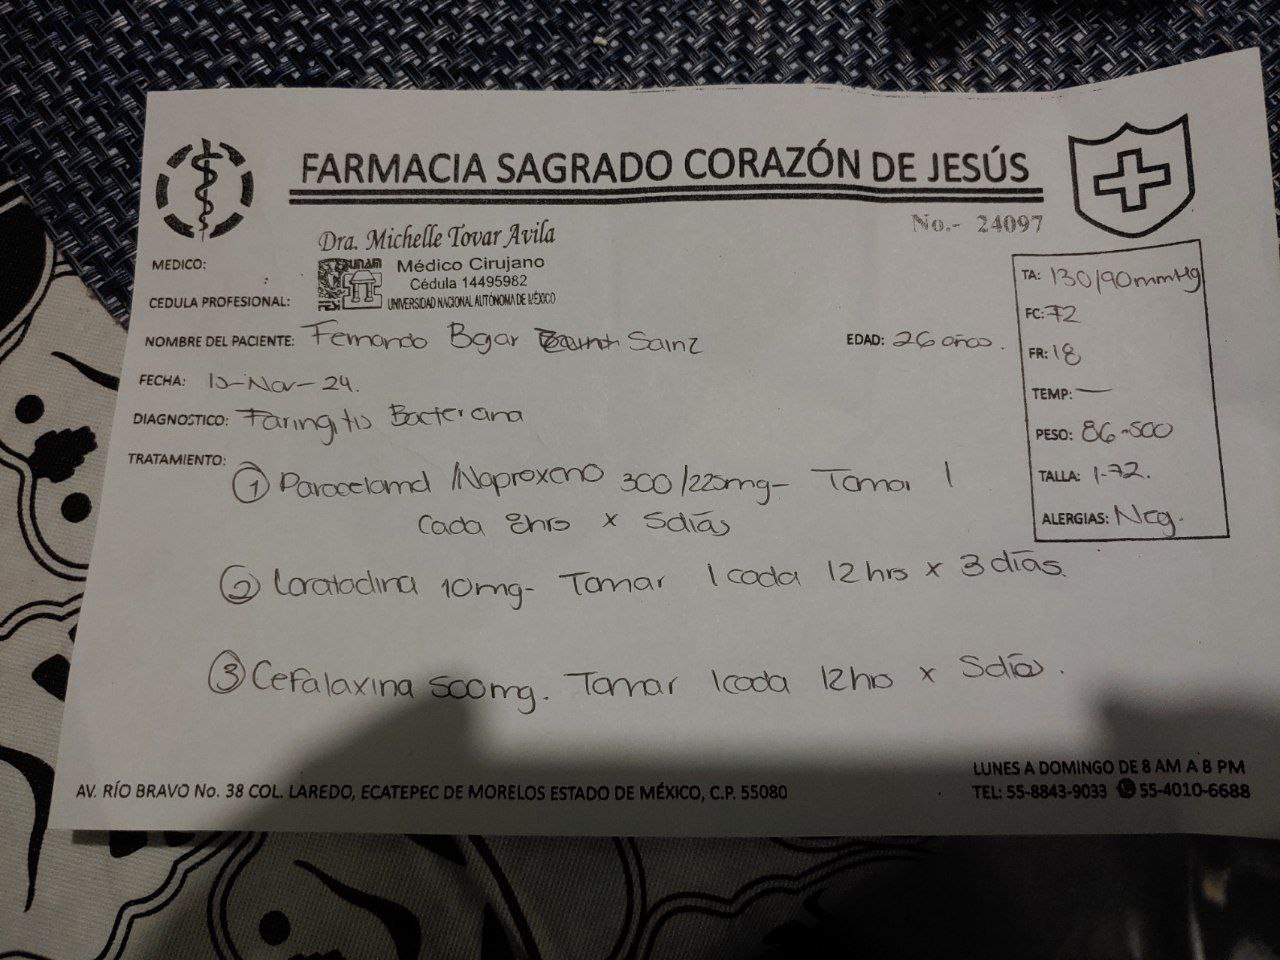 FARMACIA SAGRADO CORAZÓN DE JESÚS
No.- 24097
Dra. Michelle Tovar Avila
MEDICO:
UNAM
Médico Cirujano
Cédula 14495982
UNIVERSIDAD NACIONAL AUTÓNOMA DE MÉXICO
CEDULA PROFESIONAL:
NOMBRE DEL PACIENTE: Fernando Sainz
EDAD: 26 años.
FECHA: Nov-24.
DIAGNOSTICO: Faringitis Bacteriana
TRATAMIENTO:
① Paracetamol /Naproxeno 300/225mg- Tomar 1
cada 8hrs x 5días
② Loratadina 10mg- Tomar 1 cada 12 hrs x 3 días.
③ Cefalaxina 500mg. Tomar 1 cada 12 hrs x 5días.
TA: 130/90mmHg
FC: 72
FR: 18
TEMP: —
PESO: 86-500
TALLA: 1-72.
ALERGIAS: Neg.
LUNES A DOMINGO DE 8 AM A 8 PM
AV. RÍO BRAVO No. 38 COL. LAREDO, ECATEPEC DE MORELOS ESTADO DE MÉXICO, C.P. 55080
TEL: 55-8843-9033 55-4010-6688